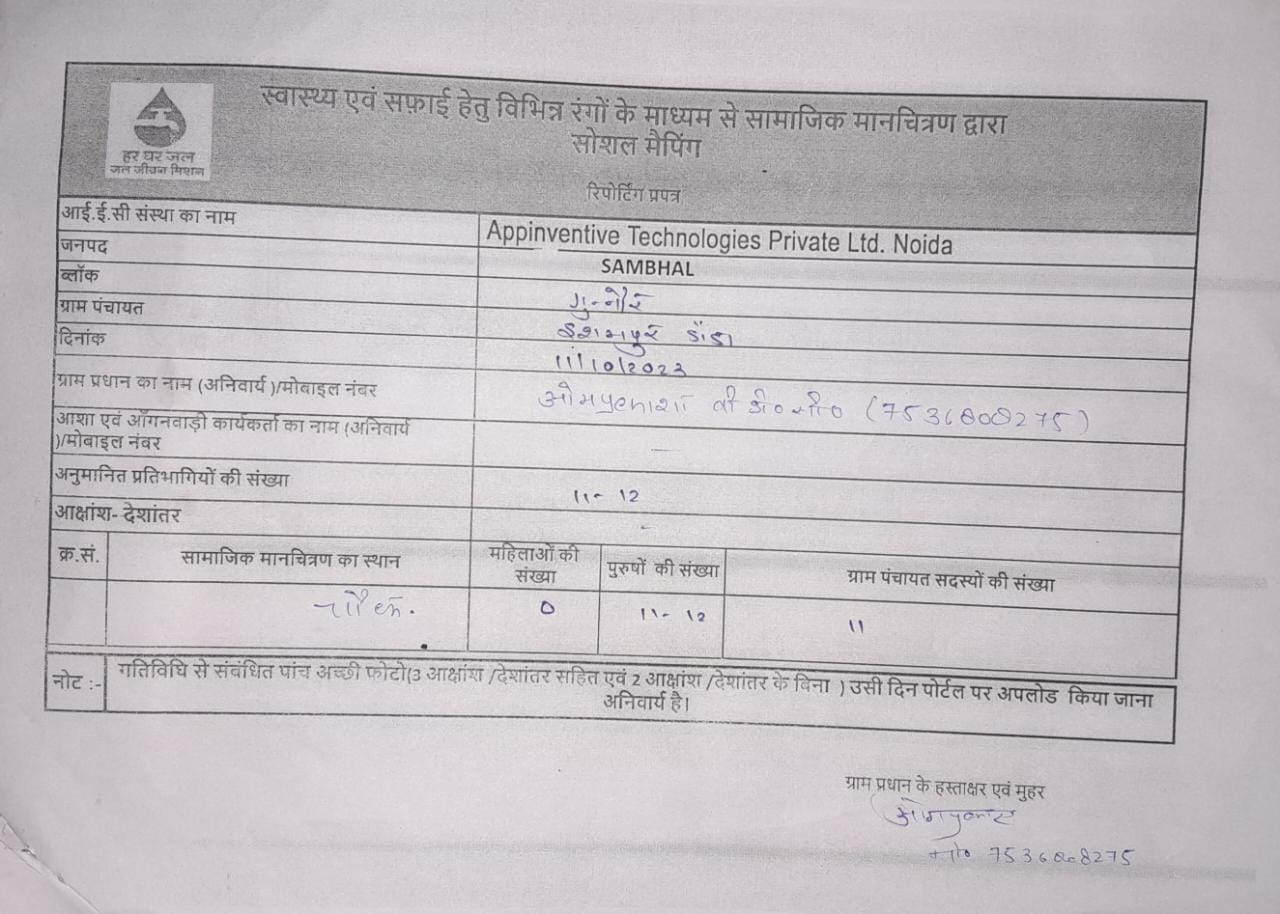 हर घर जल
जल जीवन मिशन
स्वास्थ्य एवं सफ़ाई हेतु विभिन्न रंगों के माध्यम से सामाजिक मानचित्रण द्वारा
सोशल मैपिंग
रिपोर्टिंग प्रपत्र
आई.ई.सी संस्था का नाम Appinventive Technologies Private Ltd. Noida
जनपद SAMBHAL
ब्लॉक गुन्नौर
ग्राम पंचायत
दिनांक 11/10/2023
ग्राम प्रधान का नाम (अनिवार्य )/मोबाइल नंबर ओमप्रकाश बी०डी०सी०
आशा एवं आँगनवाड़ी कार्यकर्ता का नाम (अनिवार्य
)/मोबाइल नंबर —
अनुमानित प्रतिभागियों की संख्या 11- 12
आक्षांश- देशांतर -
क्र.सं. सामाजिक मानचित्रण का स्थान महिलाओं की संख्या पुरुषों की संख्या ग्राम पंचायत सदस्यों की संख्या
चौक. 0 11- 12 11
नोट :- गतिविधि से संबंधित पांच अच्छी फोटो(3 आक्षांश /देशांतर सहित एवं 2 आक्षांश /देशांतर के बिना ) उसी दिन पोर्टल पर अपलोड किया जाना
अनिवार्य है।
ग्राम प्रधान के हस्ताक्षर एवं मुहर
ओमप्रकाश
मो०